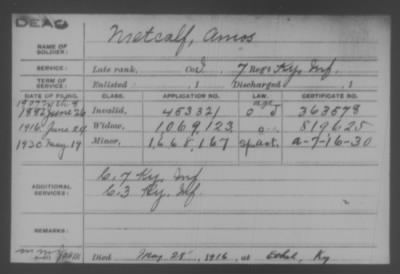 DEAD
NAME OF SOLDIER: Metcalf, Amos
SERVICE: Late rank, Co. I, 7 Reg't Ky. Inf.
TERM OF SERVICE: Enlisted , 1 Discharged , 1
DATE OF FILING. CLASS. APPLICATION NO. LAW. CERTIFICATE NO.
1882 June 26 Invalid, 453321 363578
1916 June 24 Widow, 1069123 819625
1930 May 19 Minor, 1668167 a-7-16-30
ADDITIONAL SERVICES: C. 7 Ky. Inf
C. 3 Ky. Inf.
REMARKS:
Died May 28, 1916, at Ky